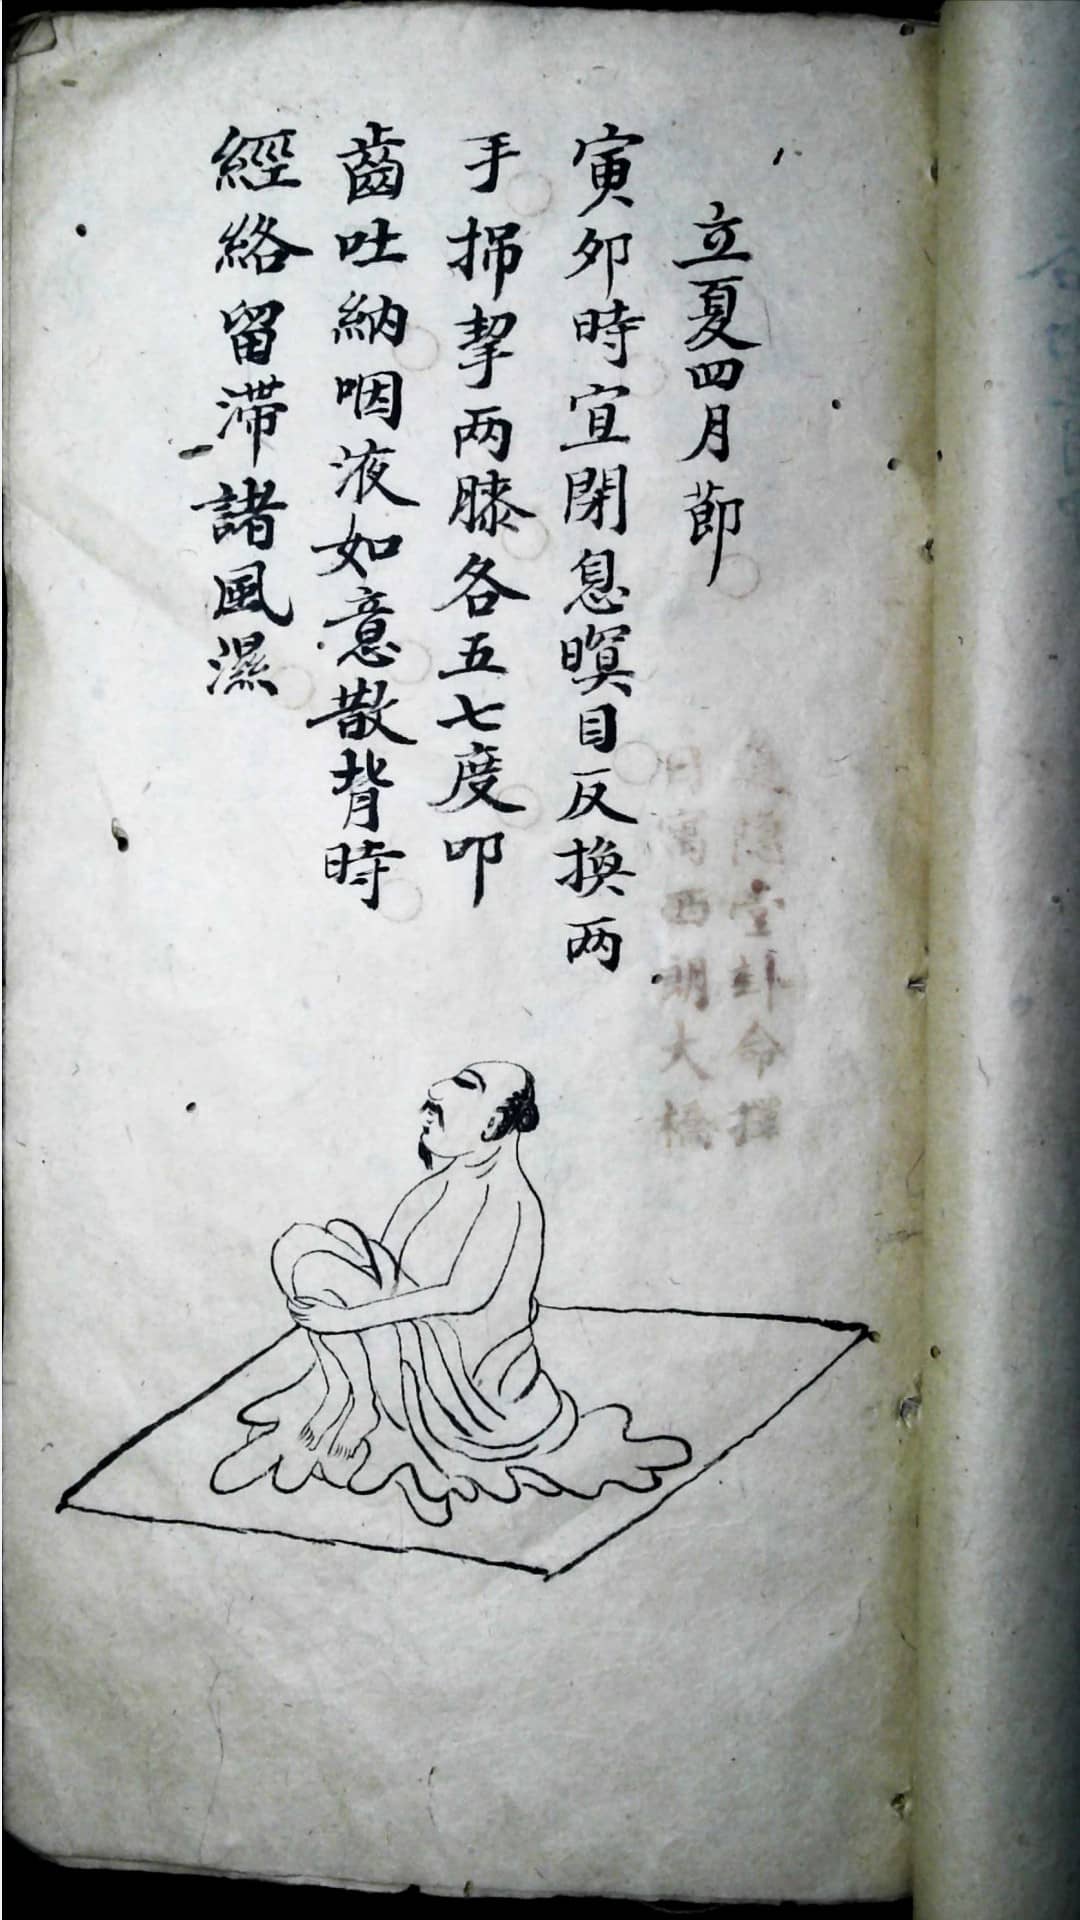 立夏四月節
寅夘時宜閉息瞑目反換两
手掃挈两膝各五七度叩
齒吐納咽液如意散背時
經絡留滞諸風濕
堂 命擇
寓西 大橋